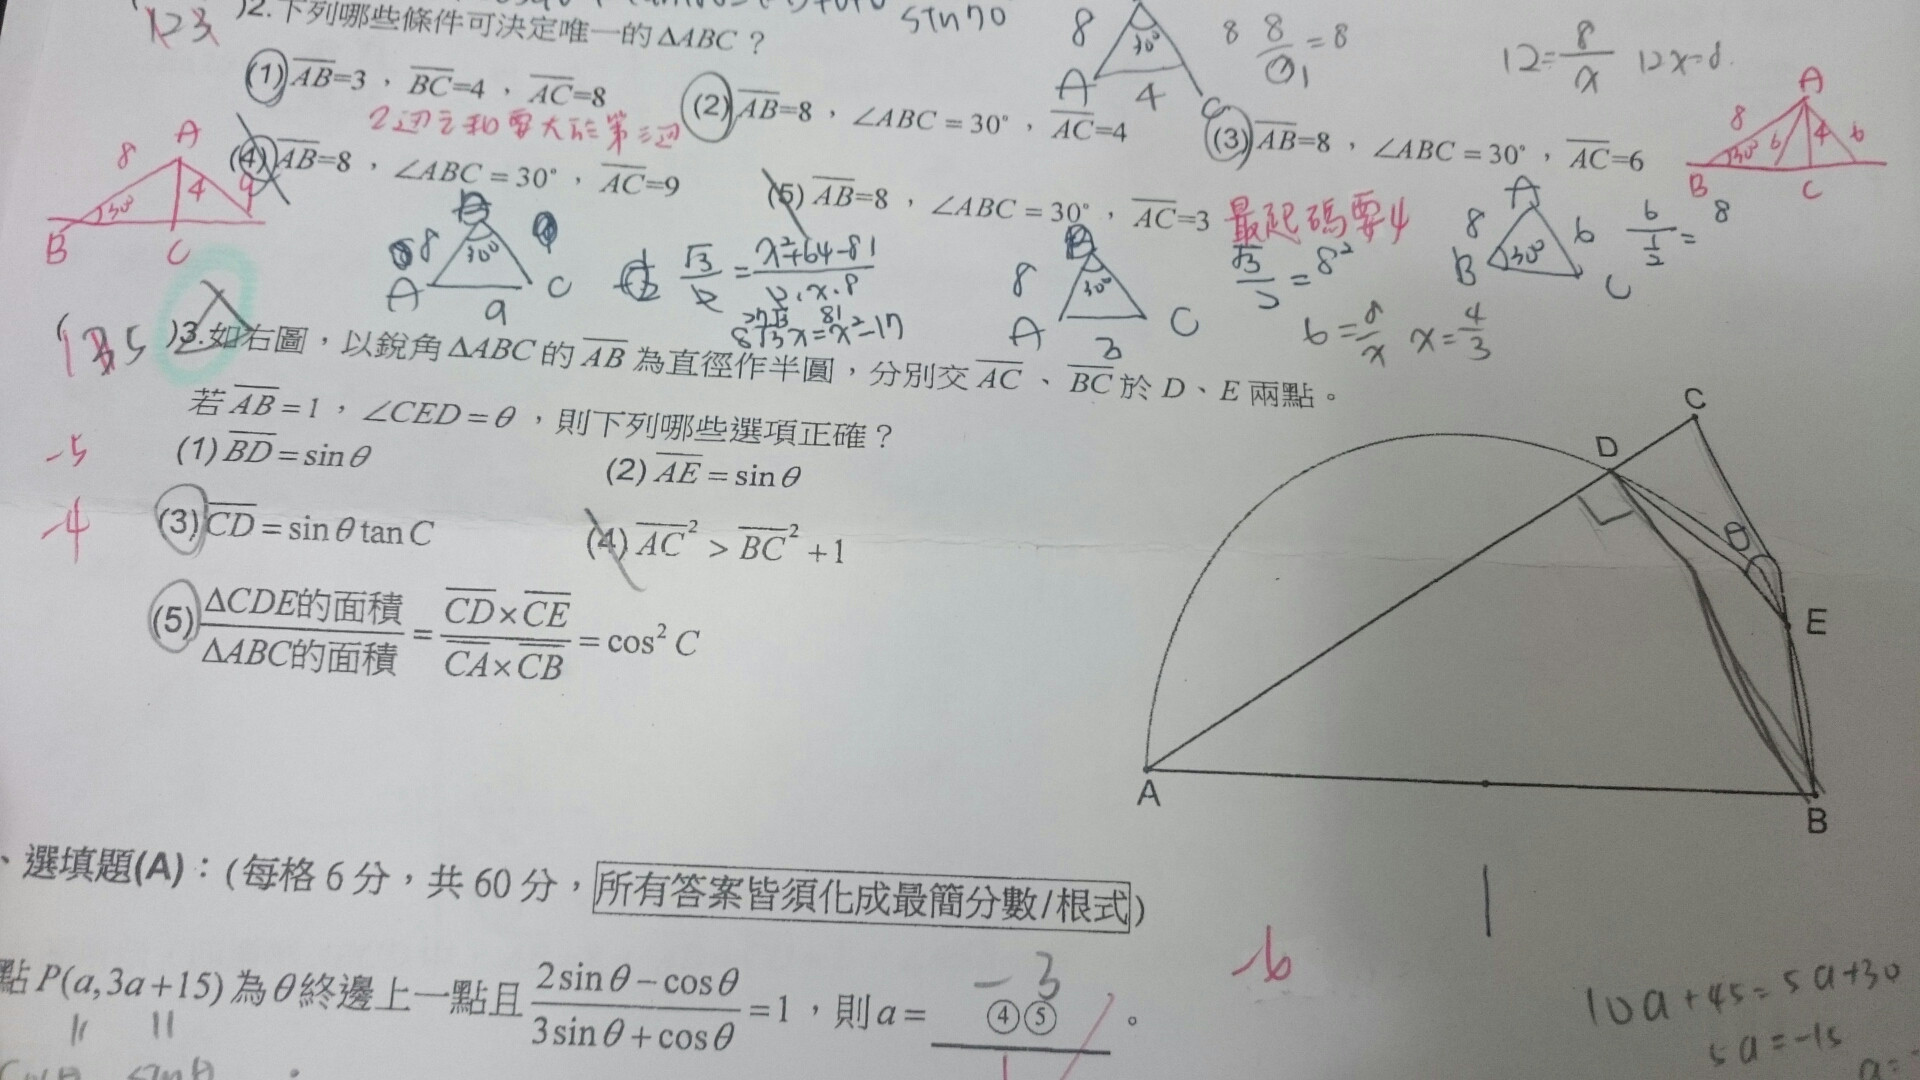 123 )2.下列哪些條件可決定唯一的ΔABC？
sin70
(1) AB=3，BC=4，AC=8
2邊之和要大於第三邊
(2) AB=8，∠ABC=30°，AC=4
(3) AB=8，∠ABC=30°，AC=6
(4) AB=8，∠ABC=30°，AC=9
(5) AB=8，∠ABC=30°，AC=3 最起碼要4
8 30° A 4 C
8 8/1 =8
12=8/x 12x=8.
A 8 6 4 6 30° B C
A 8 4 9 30° B C
8 30° A 9 C
√3/2 = x²+64-81/2．x．8
8√3x=x²-17
8 B 30° A 3 C
√3/2 = 8²
6=8/x x=4/3
A 8 6 B 30° C
6/(1/2) = 8
(135 )3.如右圖，以銳角ΔABC的AB為直徑作半圓，分別交AC、BC於D、E兩點。
若AB=1，∠CED=θ，則下列哪些選項正確？
-5
(1) BD=sinθ
(2) AE=sinθ
-4
(3) CD=sinθtanC
(4) AC²>BC²+1
(5) ΔCDE的面積/ΔABC的面積 = CD×CE/CA×CB = cos²C
C
D
θ
E
A
B
1
、選填題(A)：(每格6分，共60分，所有答案皆須化成最簡分數/根式)
-6
點P(a,3a+15)為θ終邊上一點且 2sinθ-cosθ/3sinθ+cosθ =1，則a= ④⑤ 。
-3
10a+45=5a+30
5a=-15
a=